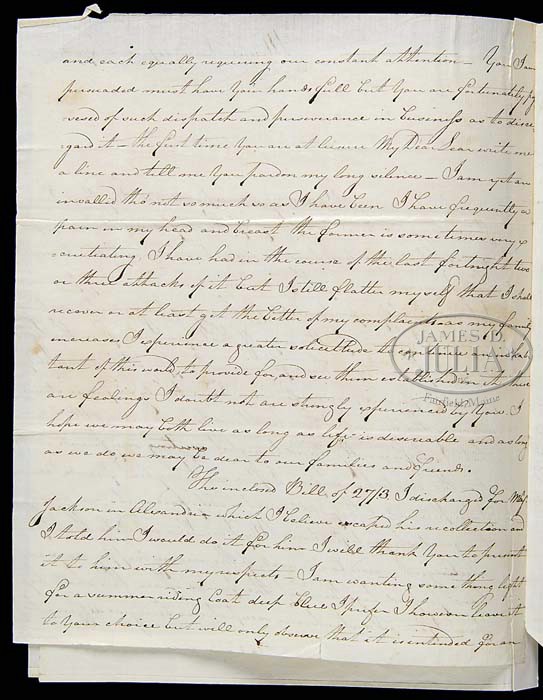 and each equally requiring our constant attention – You I am
persuaded must have Your hands full but You are fortunately pos
sessed of such dispatch and perseverance in business as to disre
gard it – the first time You are at leisure My Dear Lear write me
a line and tell me You pardon my long silence – I am yet an
invallid tho not so much so as I have been I have frequently a
pain in my head and breast the former is sometimes very ex
cruciating. I have had in the course of the last fortnight two
or three attacks of it but I still flatter myself that I shall
recover or at least get the better of my complaints as my family
increases I experience a greater solicitude to continue an inhabi
tant of this world, to provide for, and see them established in it these
are feelings I doubt not are strongly experienced by You. I
hope we may both live as long as life is desireable and as long
as we do we may be dear to our families and friends.
The inclosed Bill of 27/3 I discharged for Majr
Jackson in Alexandria which I believe escaped his recollection and
I told him I would do it for him I will thank You to present
it to him with my respects – I am wanting some thing light
for a summer riding Coat deep blue I prefer I however leave it
to Your choice but will only observe that it is intended for an
JAMES D.
JULIA
Fairfield, Maine